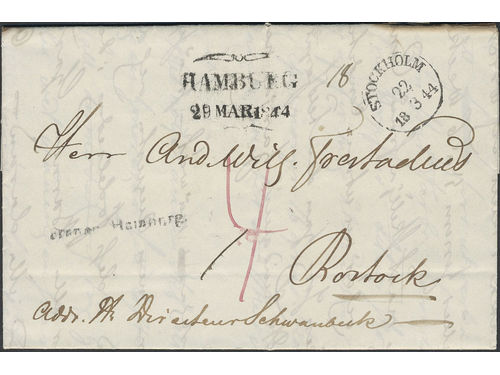 HAMBURG
29 MAR 1844
18
STOCKHOLM
22
3
18 44
Herr And. Will.
franco Hamburg.
4
Rostock
Addr. Hr Directeur Schwanbeck